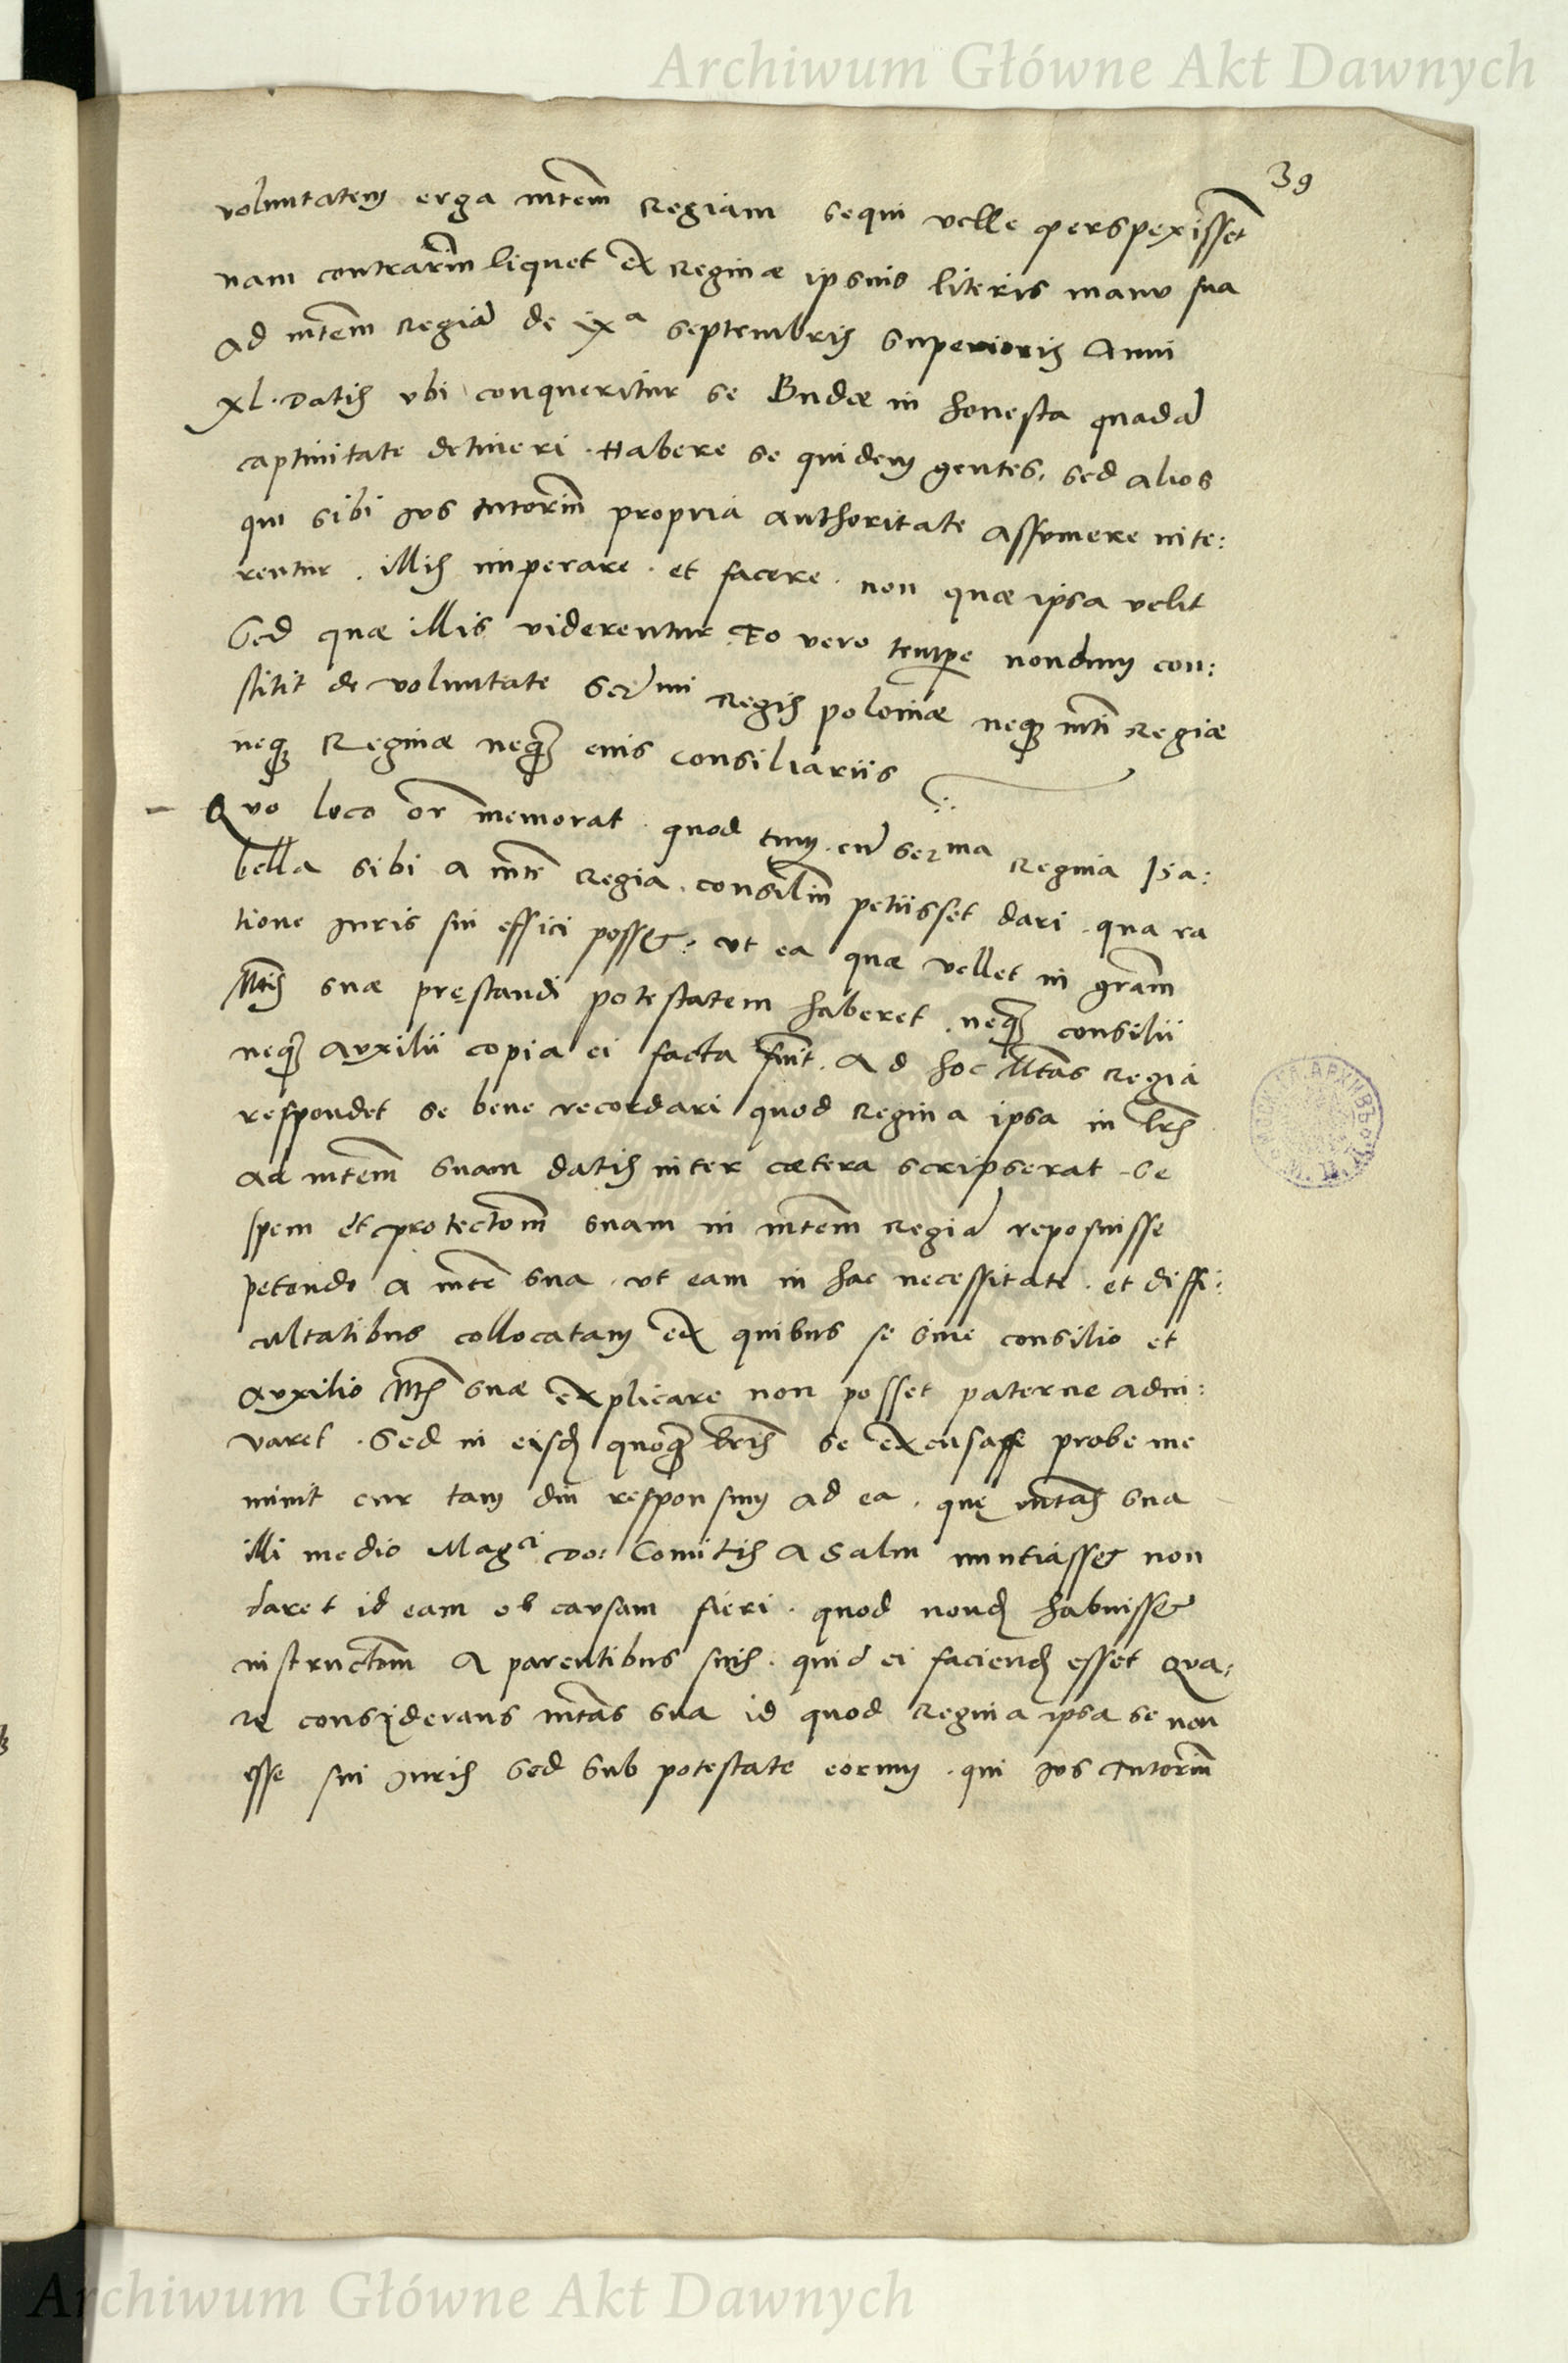 Archiwum Główne Akt Dawnych
39
voluntatem erga mtem Regiam sequi velle perspexisset
nam contrarim liquet ex Reginæ ipsius literis manu sua
Ad mtem Regia de ixa septembris superioris Anni
xl. Datis ubi conqueritur se Budæ in honesta quada
captivitate detineri. Habere se quidem gentes, sed alios
qui sibi jus tutorim propria authoritate assumere nite:
rentur. illis imperare. et facere. non quæ ipsa velit
Sed quæ illis viderentur. Eo vero tempe nondum con:
stitit de voluntate Sermi Regis poloniæ neq mti Regiæ
neq Reginæ neq eius consiliariis
Quo loco or memorat. quod tum. cu serma Regina Isa:
bella sibi a mte Regia. consilim petiisset dari. qua ra
tione juris sui effici posset: ut ea quæ vellet in gram
Mtis suæ pręstandi potestatem haberet. neq consilii
neq auxilii copia ei facta fuit. Ad hoc Mtas Regia
respondet se bene recordari quod Regina ipsa in lris
ad mtem suam datis inter cætera scripserat se
spem et protectom suam in mtem Regia reposuisse
petendo a mte sua. ut eam in hac necessitate. et diffi:
cultatibus collocatam ex quibus se sine consilio et
auxilio Mtis suæ explicare non posset paterne adiu:
varet. Sed in eisd quoq lris se excusasse probe me
minit cur tam diu responsum ad ea. quę mtas sua
illi medio Magci do: Comitis a Salm nuntiasset non
daret id eam ob causam fieri. quod nond habuisset
instructom a parentibus suis. quid ei faciend esset qua:
re considerans mtas sua id quod Regina ipsa se non
esse sui juris sed sub potestate eorum. qui jus tutorim
Archiwum Główne Akt Dawnych